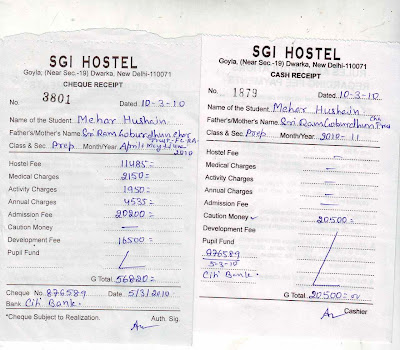 SGI HOSTEL
Goyla, (Near Sec.-19) Dwarka, New Delhi-110071
CHEQUE RECEIPT
No. 3801 Dated. 10-3-10
Name of the Student Mehar Hushain.
Father's/Mother's Name. Sri Ram Goburdhun
Class & Sec Prep Month/Year April May June
2010
Hostel Fee 11485=
Medical Charges 2150=
Activity Charges 1950=
Annual Charges 4535=
Admission Fee 20200=
Caution Money —
Development Fee 16500=
Pupil Fund
G Total. 56820=
Cheque No 876589 Date 5/3/2010
Bank Citi Bank.
*Cheque Subject to Realization. Auth. Sig.
SGI HOSTEL
Goyla, (Near Sec.-19) Dwarka, New Delhi-110071
CASH RECEIPT
No. 1879 Dated. 10-3-10
Name of the Student Mehar Hushain
Father's/Mother's Name. Sri Ram Goburdhun
Class & Sec Prep Month/Year 2010-11
Hostel Fee —
Medical Charges —
Activity Charges —
Annual Charges —
Admission Fee —
Caution Money 20500=
Development Fee
Pupil Fund
876589
5-3-10
Citi Bank.
G Total. 20500=00
Cashier